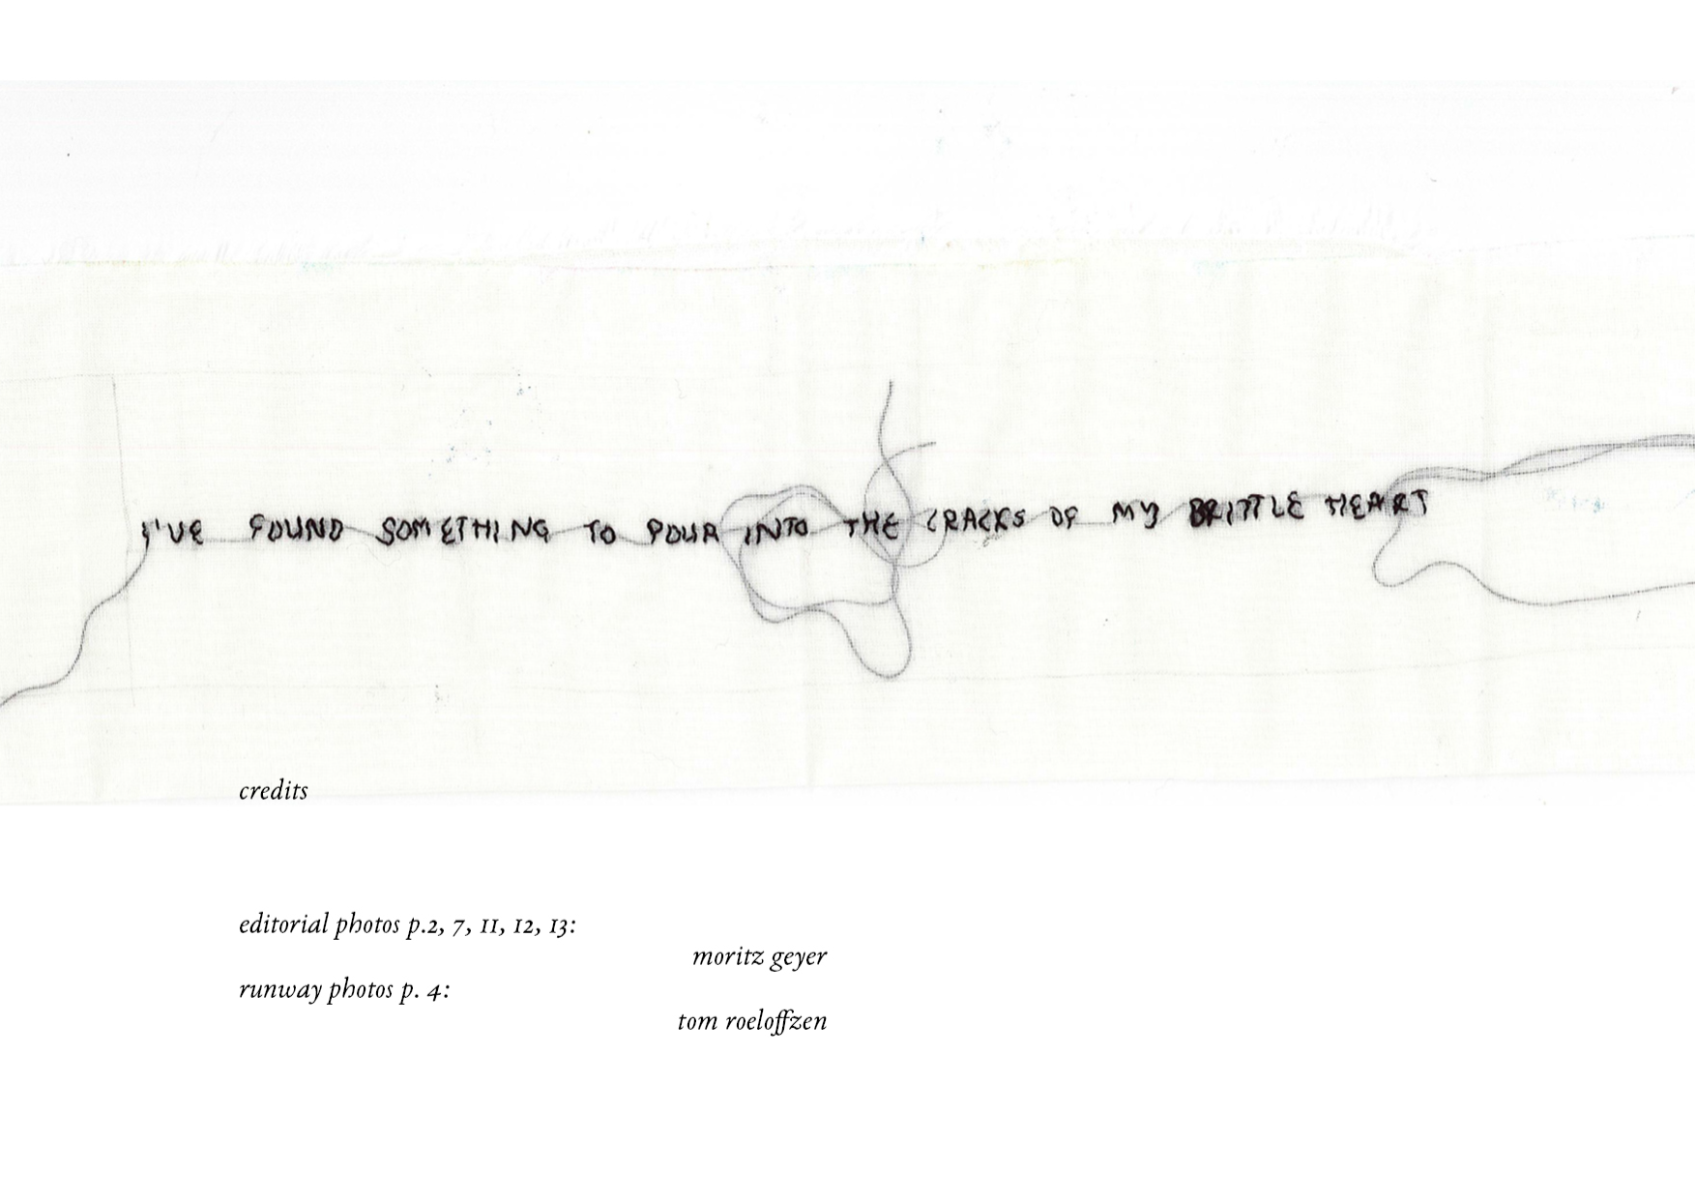 I'VE FOUND SOMETHING TO POUR INTO THE CRACKS OF MY BRITTLE HEART
credits
editorial photos p.2, 7, 11, 12, 13:
moritz geyer
runway photos p. 4:
tom roeloffzen